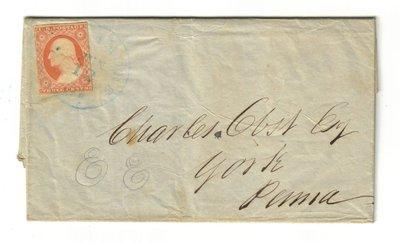 U.S. POSTAGE
THREE CENTS
Charles Obst Esq
York
Penna
E E